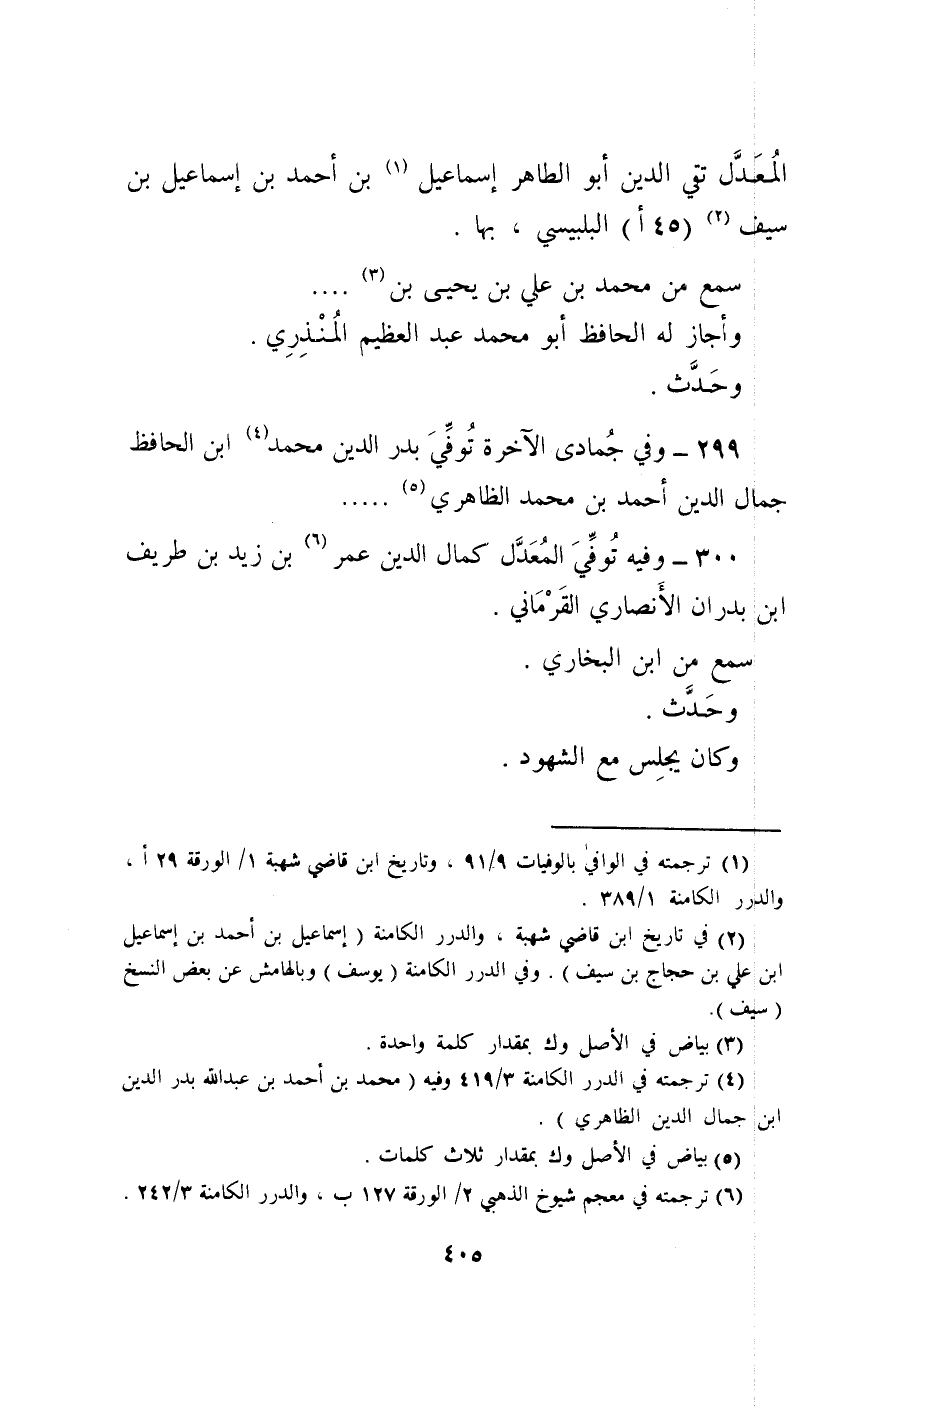 المُعَدَّل تقي الدين أبو الطاهر إسماعيل (١) بن أحمد بن إسماعيل بن
سيف (٢) (٤٥ أ) البلبيسي ، بها .
سمع من محمد بن علي بن يحيى بن (٣) ....
وأجاز له الحافظ أبو محمد عبد العظيم المُنْذِرِي .
وحَدَّث .
٢٩٩ ـ وفي جُمادى الآخرة تُوفِّيَ بدر الدين محمد(٤) ابن الحافظ
جمال الدين أحمد بن محمد الظاهري (٥) .....
٣٠٠ ـ وفيه تُوفِّيَ المُعَدَّل كمال الدين عمر (٦) بن زيد بن طريف
ابن بدران الأَنصاري القَرْمَاني .
سمع من ابن البخاري .
وحَدَّث .
وكان يجلِس مع الشهود .
(١) ترجمته في الوافي بالوفيات ٩١/٩ ، وتاريخ ابن قاضي شهبة ١/ الورقة ٢٩ أ ،
والدرر الكامنة ٣٨٩/١ .
(٢) في تاريخ ابن قاضي شهبة ، والدرر الكامنة ( إسماعيل بن أحمد بن إسماعيل
ابن علي بن حجاج بن سيف ) . وفي الدرر الكامنة ( يوسف ) وبالهامش عن بعض النسخ
( سيف ).
(٣) بياض في الأصل وك بمقدار كلمة واحدة .
(٤) ترجمته في الدرر الكامنة ٤١٩/٣ وفيه ( محمد بن أحمد بن عبدالله بدر الدين
ابن جمال الدين الظاهري ) .
(٥) بياض في الأصل وك بمقدار ثلاث كلمات .
(٦) ترجمته في معجم شيوخ الذهبي ٢/ الورقة ١٢٧ ب ، والدرر الكامنة ٢٤٢/٣ .
٤٠٥